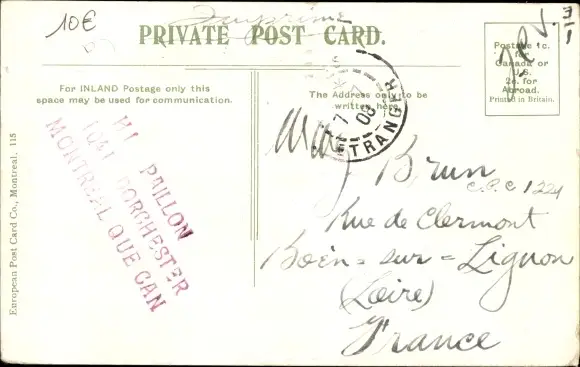 10€
PRIVATE POST CARD.
For INLAND Postage only this
space may be used for communication.
The Address only to be
written here.
Postage 1c.
for
Canada or
U.S.
2c. for
Abroad.
Printed in Britain.
ETRANGER
08
HI PAILLON
1041 DORCHESTER
MONTREAL QUE CAN
Brun
C.P.C 1224
Rue de Clermont
Boën = sur = Lignon
(Loire)
France
European Post Card Co., Montreal. 115